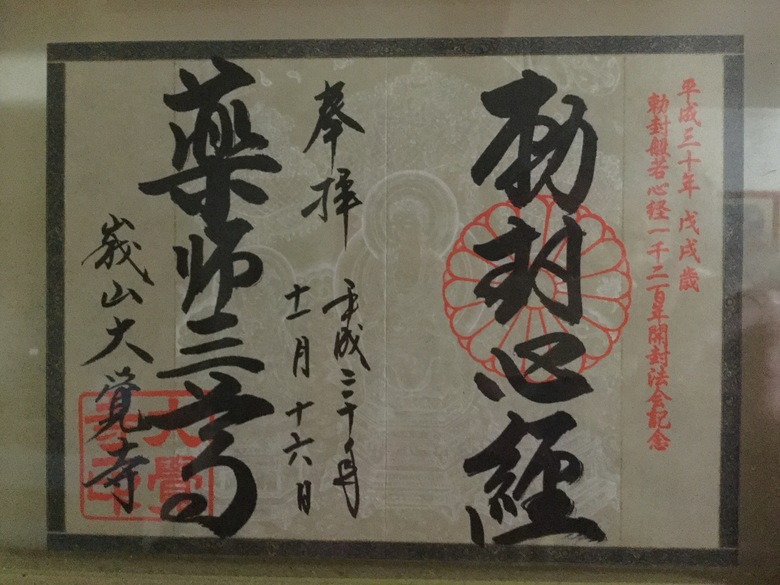 平成三十年 戊戌歳
勅封般若心経一千二百年開封法会記念
勅封心経
奉拝
平成三十年
十一月十六日
薬師三尊
嵯山大覺寺
大覺